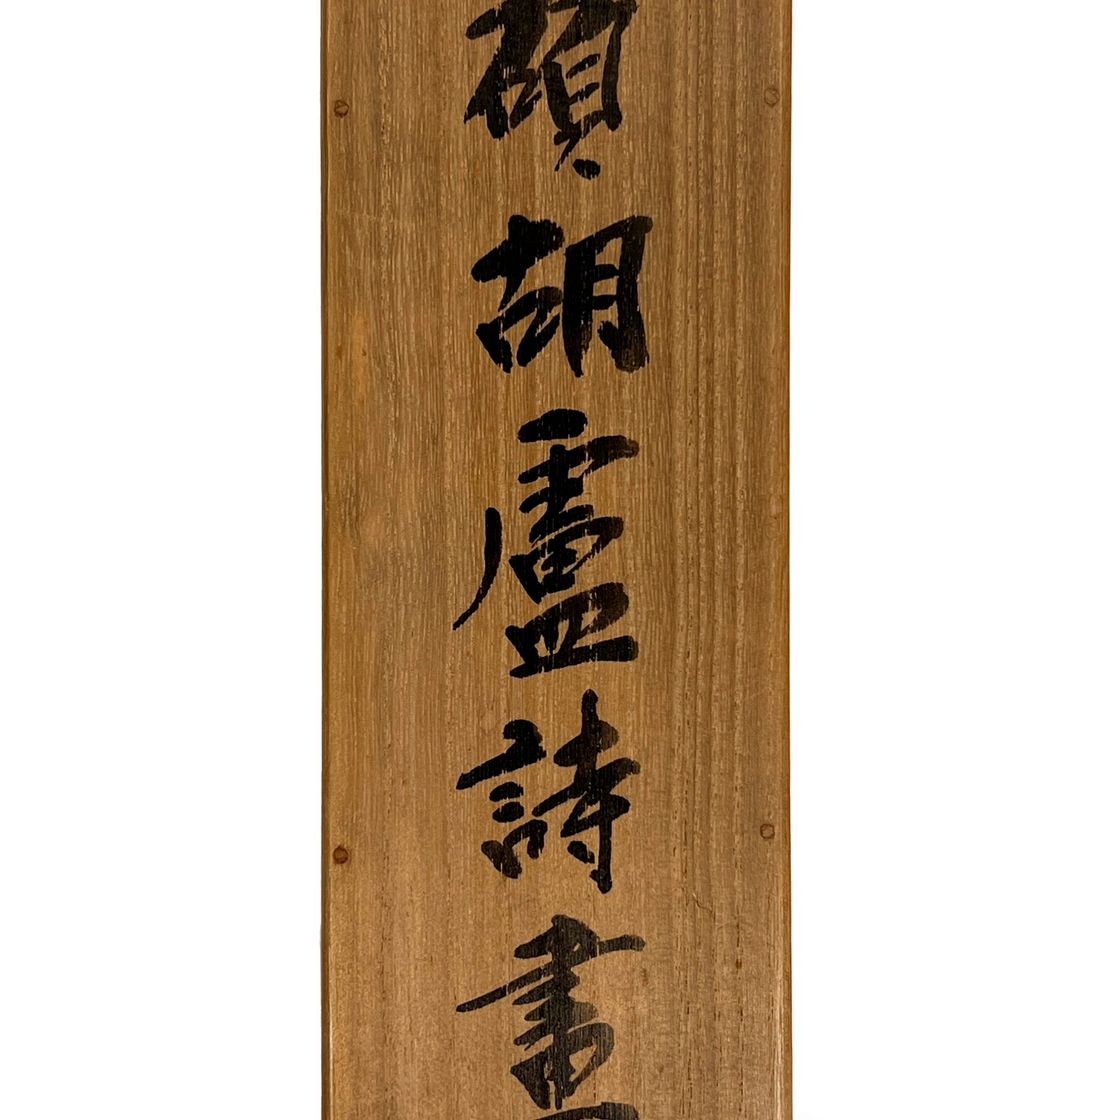 碩胡盧詩畫